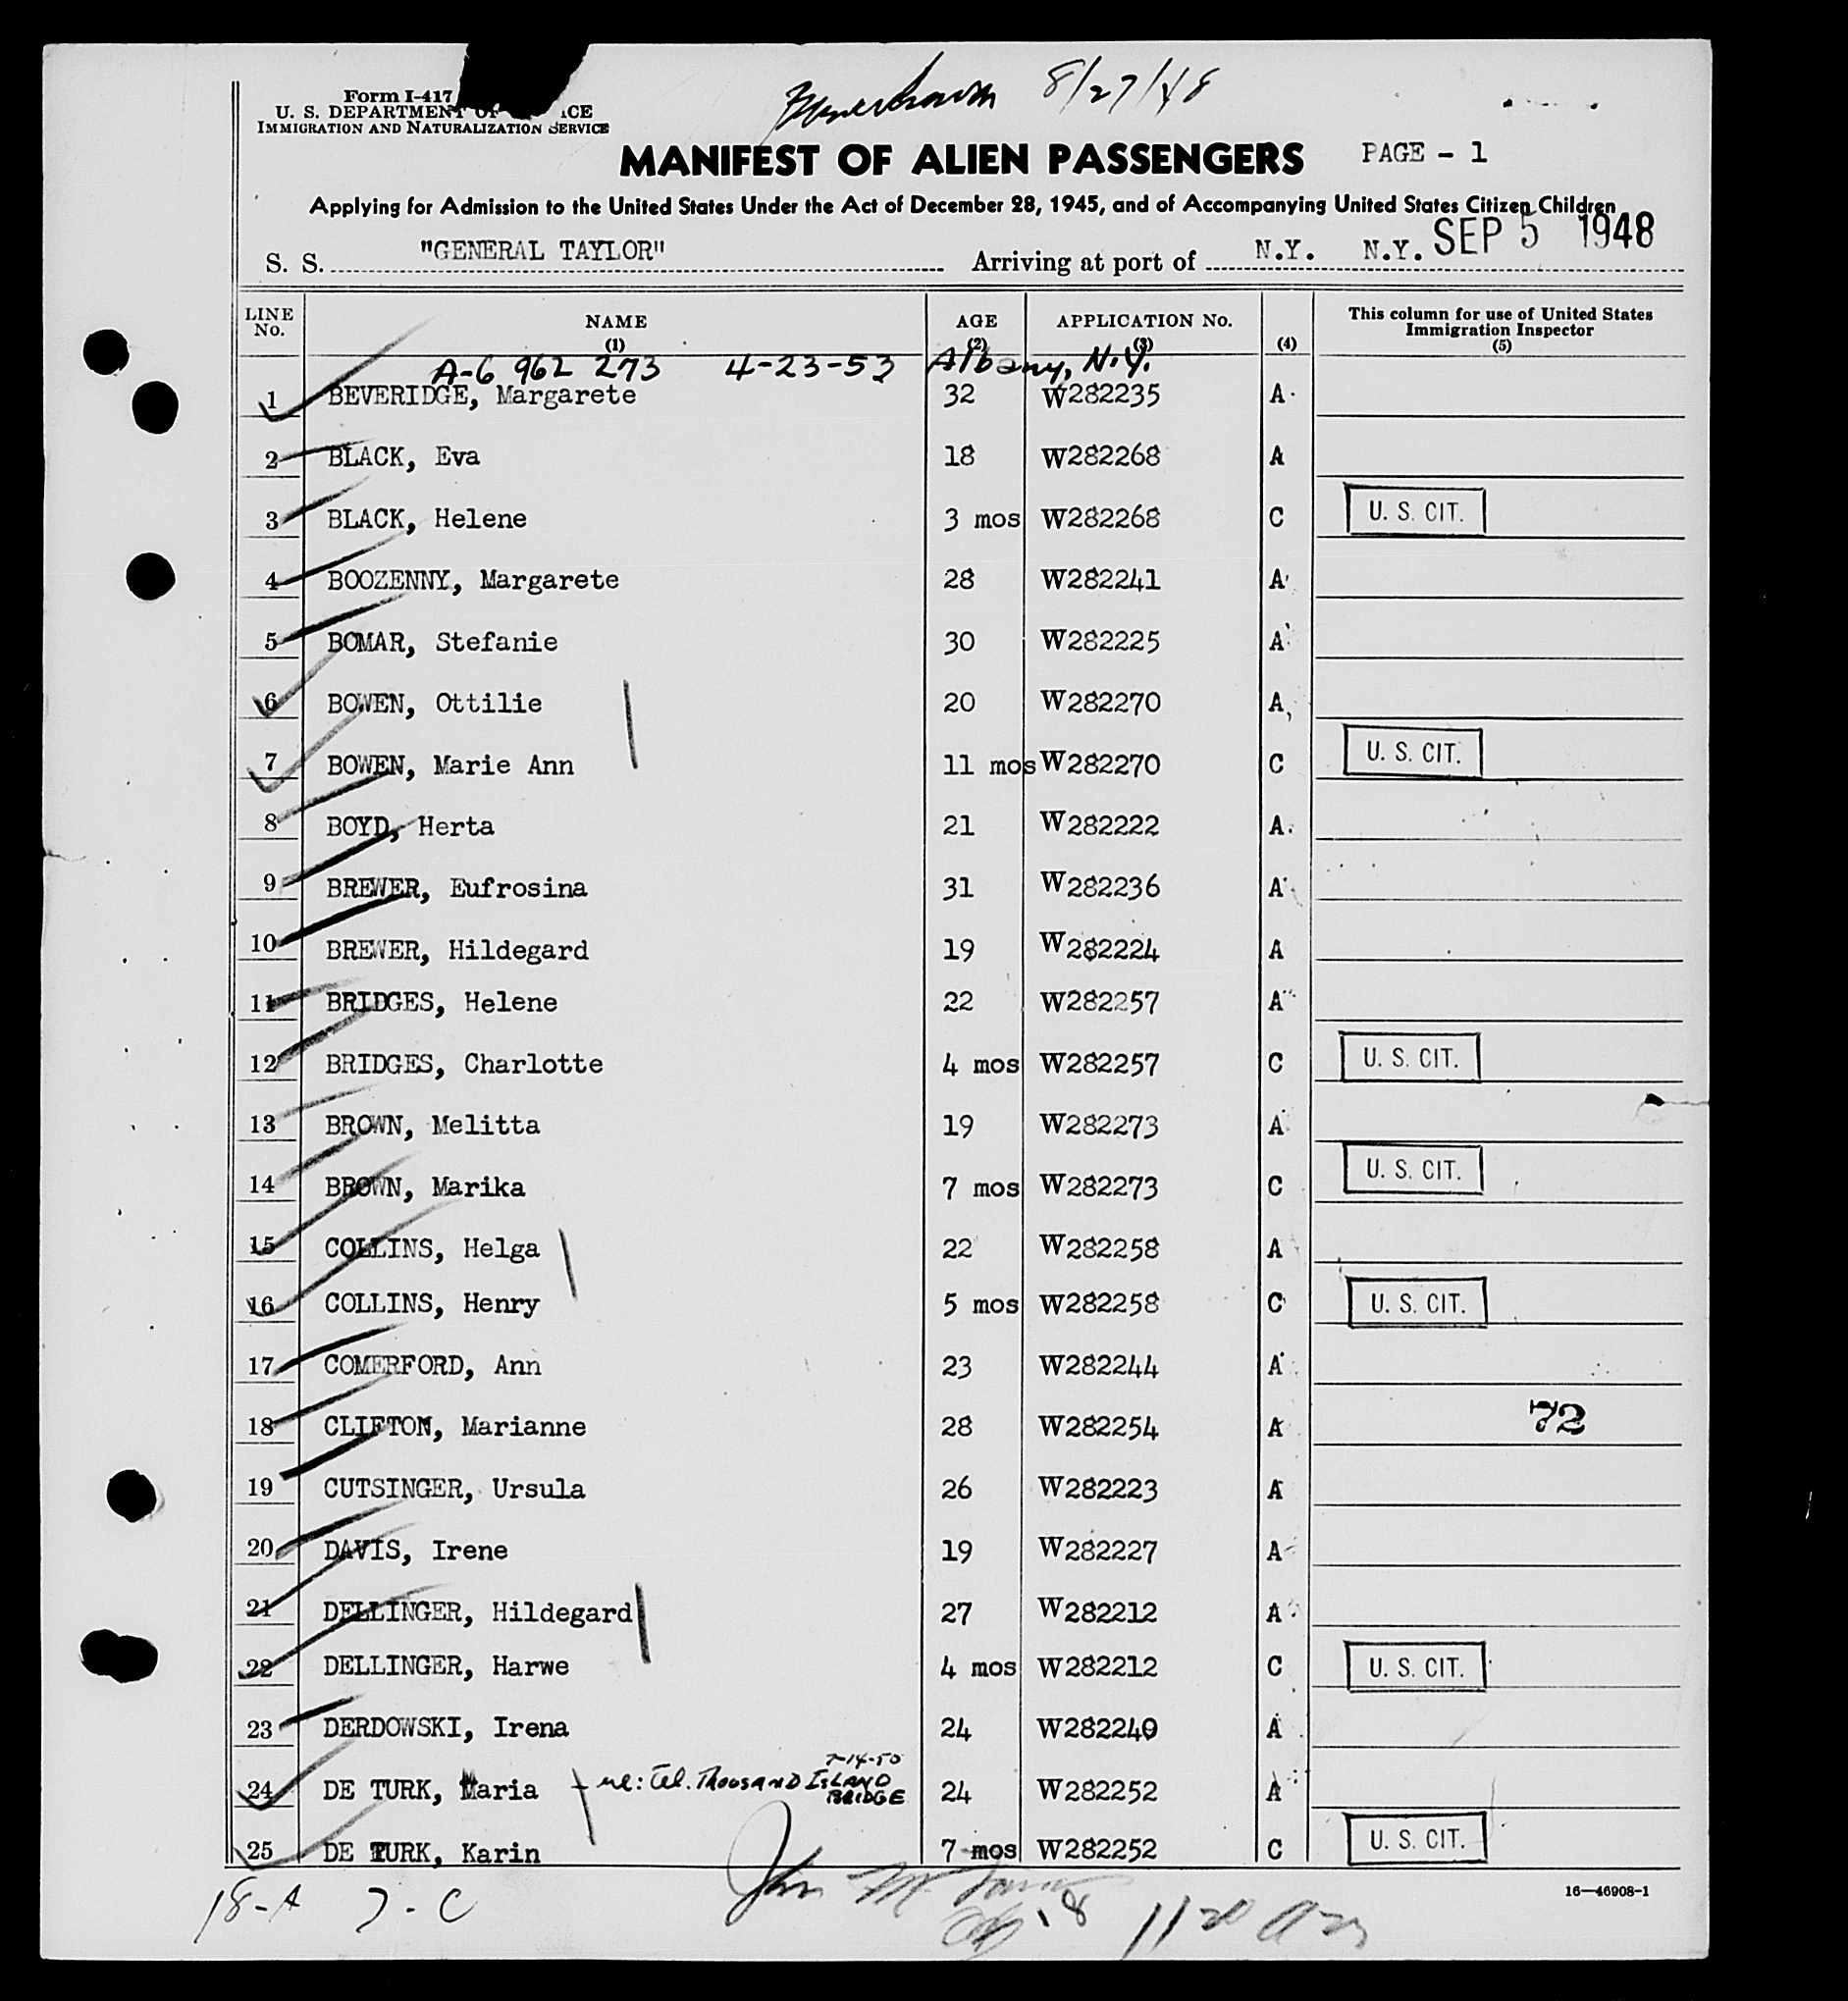 Form I-417
U. S. DEPARTMENT OF ICE
IMMIGRATION AND NATURALIZATION SERVICE
Bremerhaven 8/27/48
MANIFEST OF ALIEN PASSENGERS PAGE - 1
Applying for Admission to the United States Under the Act of December 28, 1945, and of Accompanying United States Citizen Children
S. S. "GENERAL TAYLOR" Arriving at port of N.Y. N.Y. SEP 5 1948
LINE No. NAME (1) AGE (2) APPLICATION No. (3) (4) This column for use of United States Immigration Inspector (5)
A-6 962 273 4-23-53 Albany, N.Y.
1 BEVERIDGE, Margarete 32 W282235 A
2 BLACK, Eva 18 W282268 A
3 BLACK, Helene 3 mos W282268 C U. S. CIT.
4 BOOZENNY, Margarete 28 W282241 A
5 BOMAR, Stefanie 30 W282225 A
6 BOWEN, Ottilie 20 W282270 A
7 BOWEN, Marie Ann 11 mos W282270 C U. S. CIT.
8 BOYD, Herta 21 W282222 A
9 BREWER, Eufrosina 31 W282236 A
10 BREWER, Hildegard 19 W282224 A
11 BRIDGES, Helene 22 W282257 A
12 BRIDGES, Charlotte 4 mos W282257 C U. S. CIT.
13 BROWN, Melitta 19 W282273 A
14 BROWN, Marika 7 mos W282273 C U. S. CIT.
15 COLLINS, Helga 22 W282258 A
16 COLLINS, Henry 5 mos W282258 C U. S. CIT.
17 COMERFORD, Ann 23 W282244 A
18 CLIFTON, Marianne 28 W282254 A 72
19 CUTSINGER, Ursula 26 W282223 A
20 DAVIS, Irene 19 W282227 A
21 DELLINGER, Hildegard 27 W282212 A
22 DELLINGER, Harwe 4 mos W282212 C U. S. CIT.
23 DERDOWSKI, Irena 24 W282240 A
7-14-50
24 DE TURK, Maria - re: Tel. THOUSAND ISLAND BRIDGE 24 W282252 A
25 DE TURK, Karin 7 mos W282252 C U. S. CIT.
16—46908-1
18-A 7-C John M.